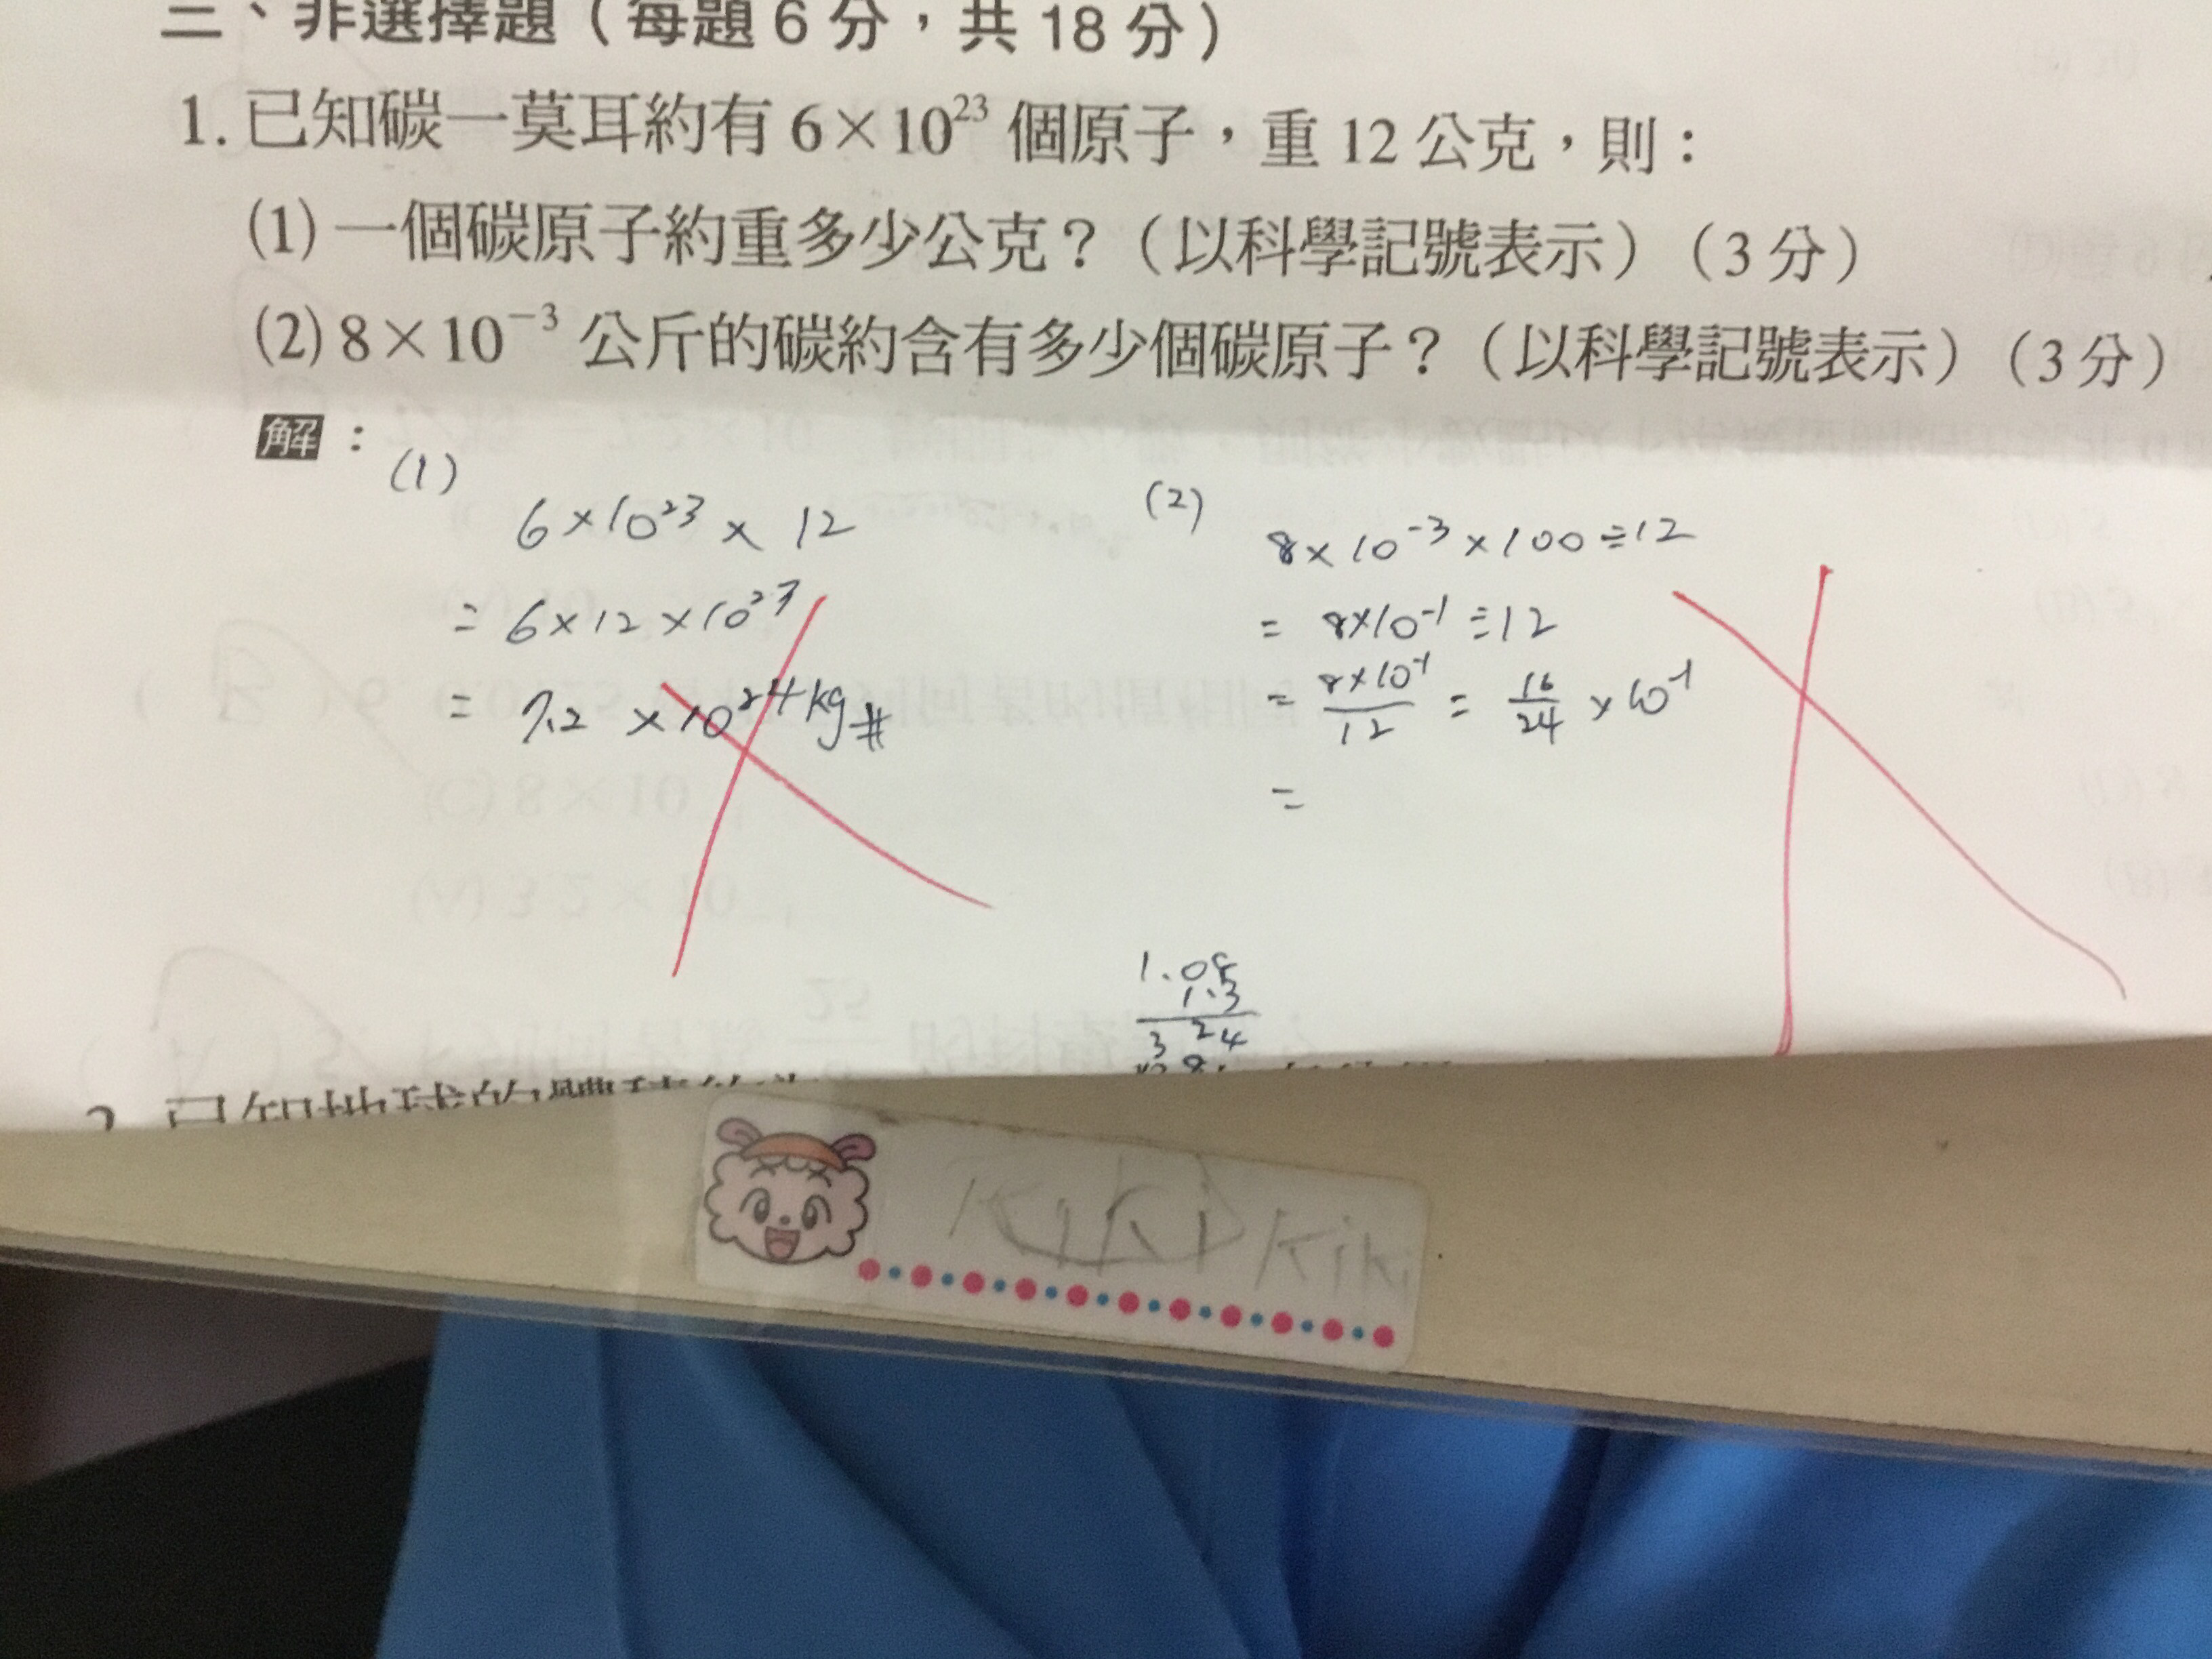 二、非選擇題（每題6分，共18分）
1. 已知碳一莫耳約有 6×10²³ 個原子，重 12 公克，則：
(1) 一個碳原子約重多少公克？（以科學記號表示）（3分）
(2) 8×10⁻³ 公斤的碳約含有多少個碳原子？（以科學記號表示）（3分）
解：
(1)
6×10²³ × 12
= 6×12×10²³
= 7.2 ×10²⁴kg#
(2)
8×10⁻³×100÷12
= 8×10⁻¹÷12
= 8×10⁻¹/12 = 16/24 ×10⁻¹
=
1.08
1.3
3 24
2. 已知地球的體積約
Kiki Kiki